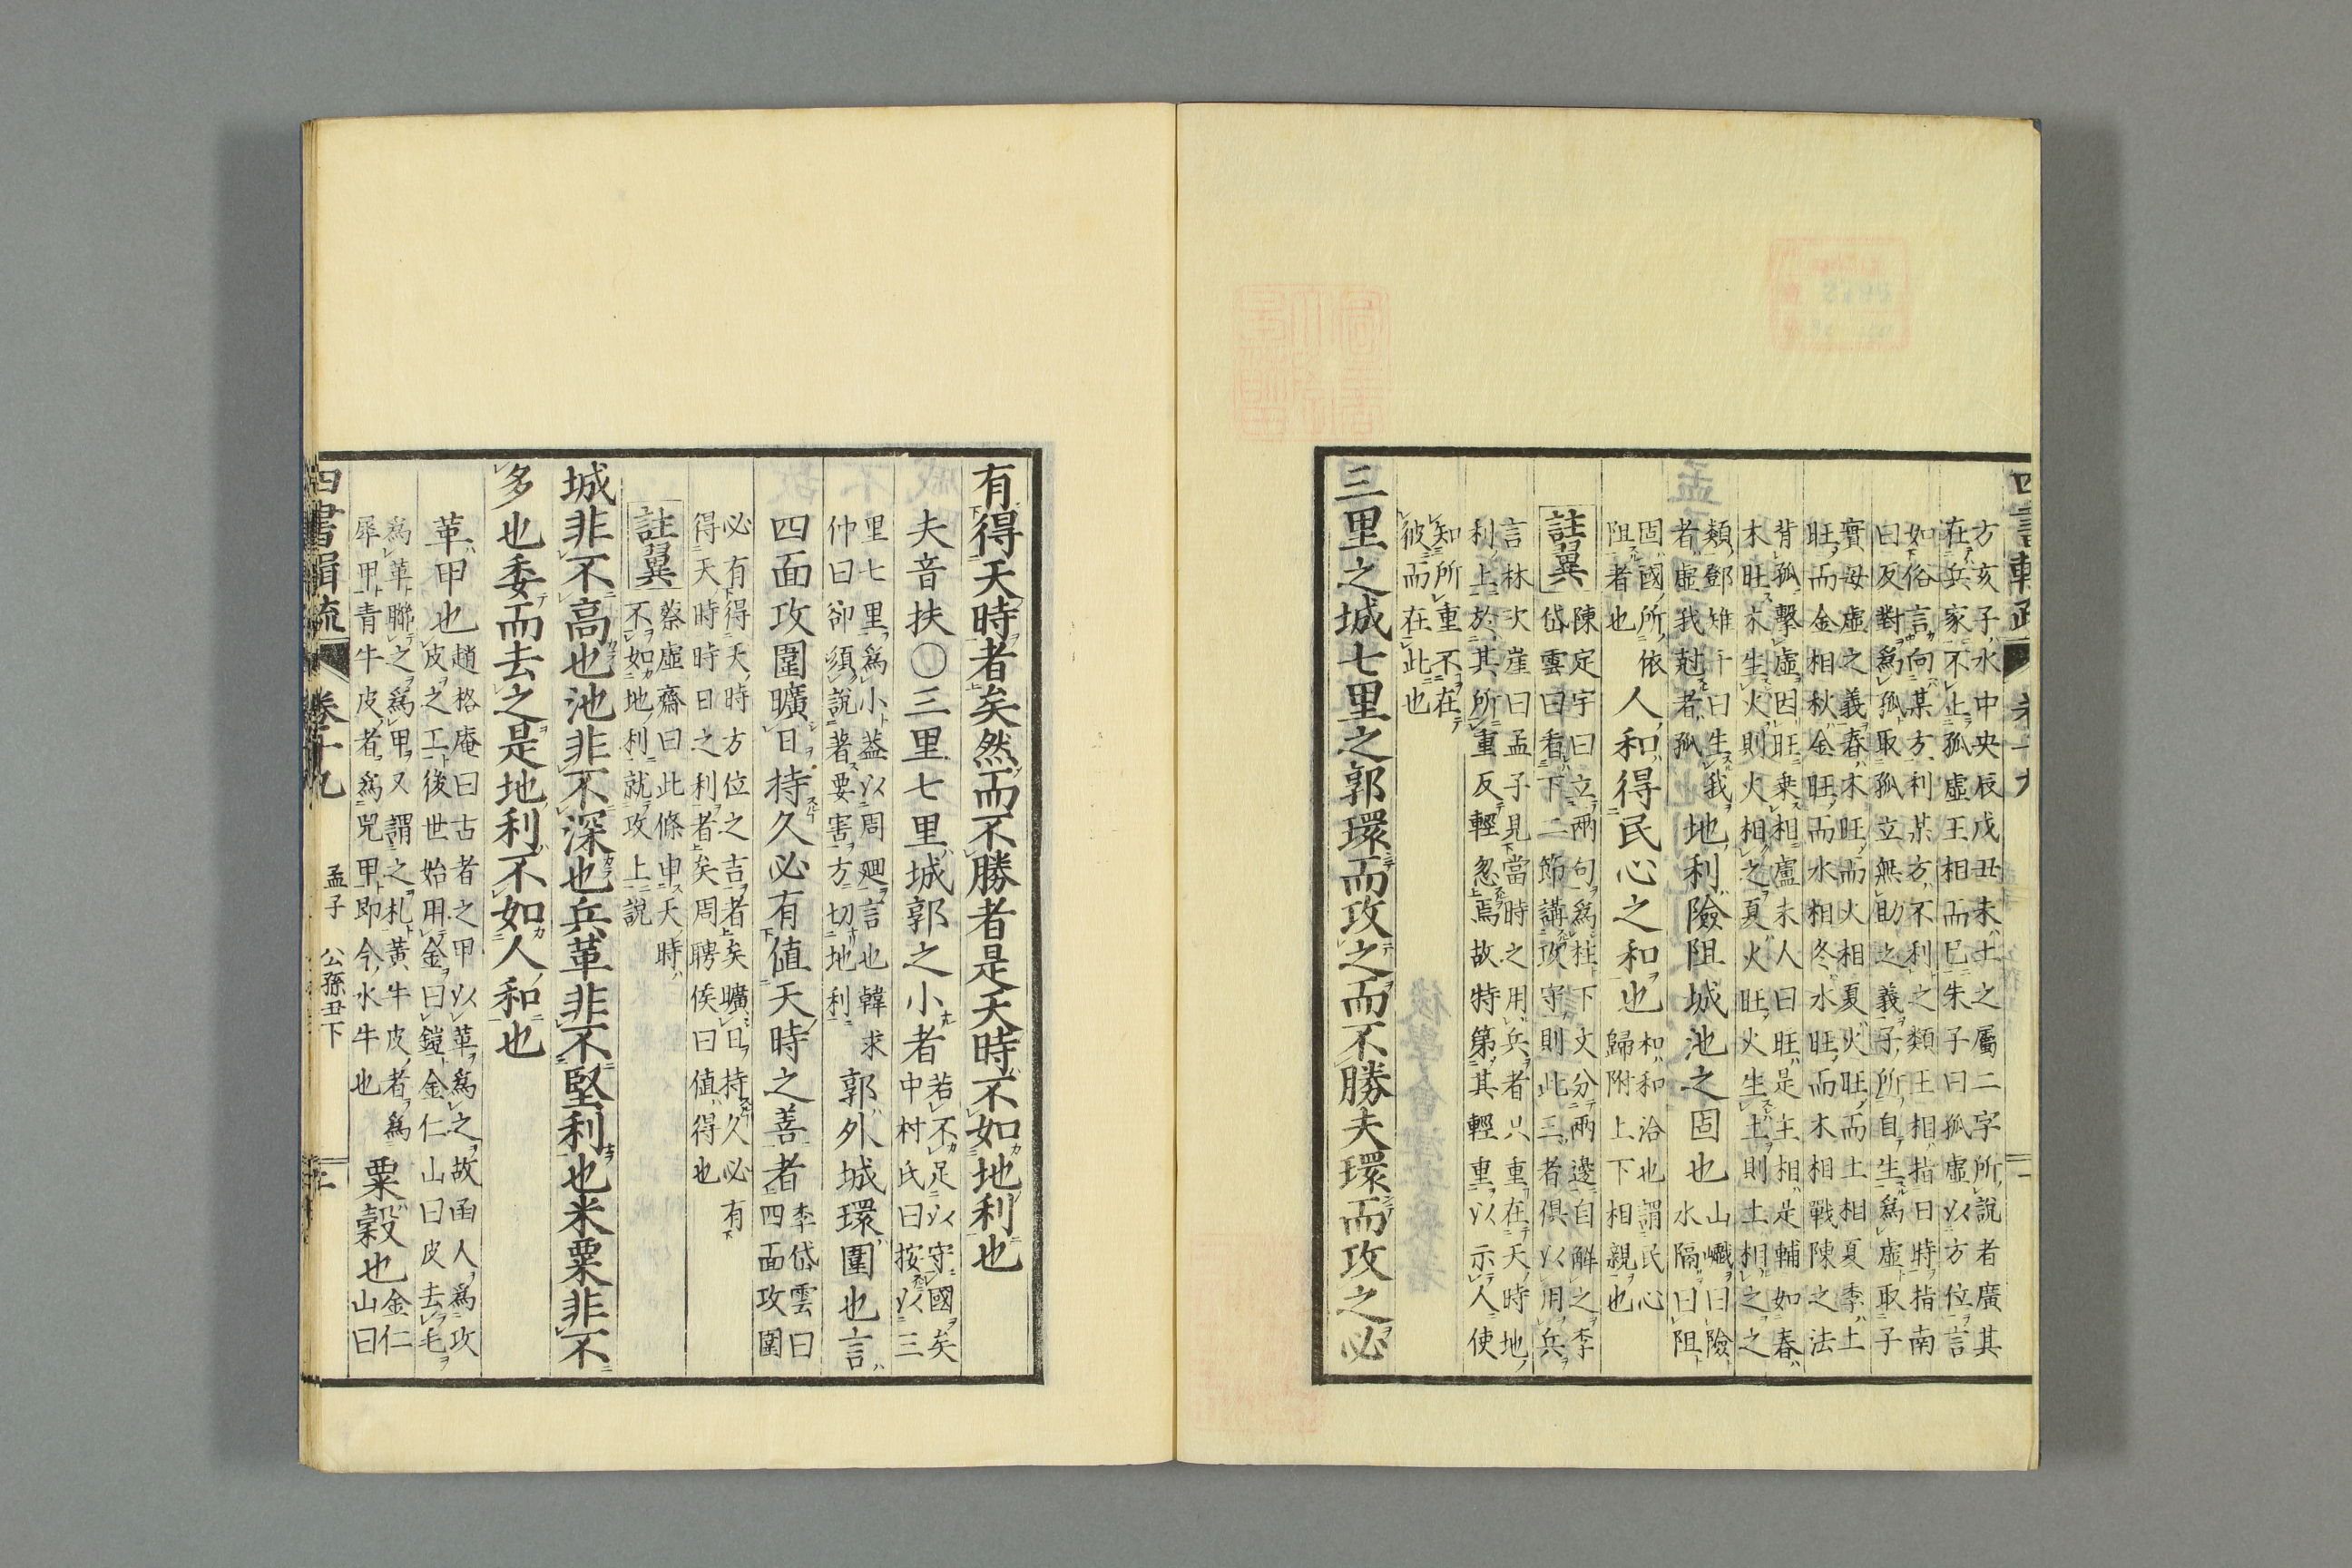 方亥子水中央辰戌丑未土之屬二字所説者廣其
在兵家不止孤虚王相而已朱子曰孤虚以方位言
如俗言向某方利某方不利之類王相指日時指南
曰反對爲孤取孤立無助之義子所自生爲虚取子
實母虚之義春木旺而火相夏火旺而土相夏季土
旺而金相秋金旺而水相冬水旺而木相戰陳之法
背孤擊虚因旺乗相盧未人曰旺是主相是輔如春
木旺木生火則火相之夏火旺火生土則土相之之
類鄧雉千曰生我
者虚我尅者孤
地利險阻城池之固也
山巇曰險
水隔曰阻
固國所依
阻者也
人和得民心之和也
和和洽也謂民心
歸附上下相親也
註翼
陳定宇曰立兩句爲柱下文分兩邊自解之李
岱雲曰看下二節講攻守則此三者俱以用兵
言林次崖曰孟子見當時之用兵者只重在天時地
利上於其所重反輕忽焉故特第其輕重以示人使
知所重不在
彼而在此也
三里之城七里之郭環而攻之而不勝夫環而攻之必
有得天時者矣然而不勝者是天時不如地利也
夫音扶○三里七里城郭之小者
若不足以守國矣
中村氏曰按以三
里七里爲小葢以周廻言也韓求
仲曰卻須説著要害方切地利
郭外城環圍也言
四面攻圍曠日持久必有値天時之善者
李岱雲曰
四面攻圍
必有得天時方位之吉者矣曠日持久必有
得天時時日之利者矣周聘侯曰値得也
註翼
蔡虚齋曰此條申天時
不如地利就攻上説
城非不高也池非不深也兵革非不堅利也米粟非不
多也委而去之是地利不如人和也
革甲也
趙格庵曰古者之甲以革爲之故函人爲攻
皮之工後世始用金曰鎧金仁山曰皮去毛
爲革聯之爲甲又謂之札黄牛皮者爲
犀甲青牛皮者爲兕甲即今水牛也
粟穀也
金仁
山曰
四書輯疏
卷十九
孟子 公孫丑下